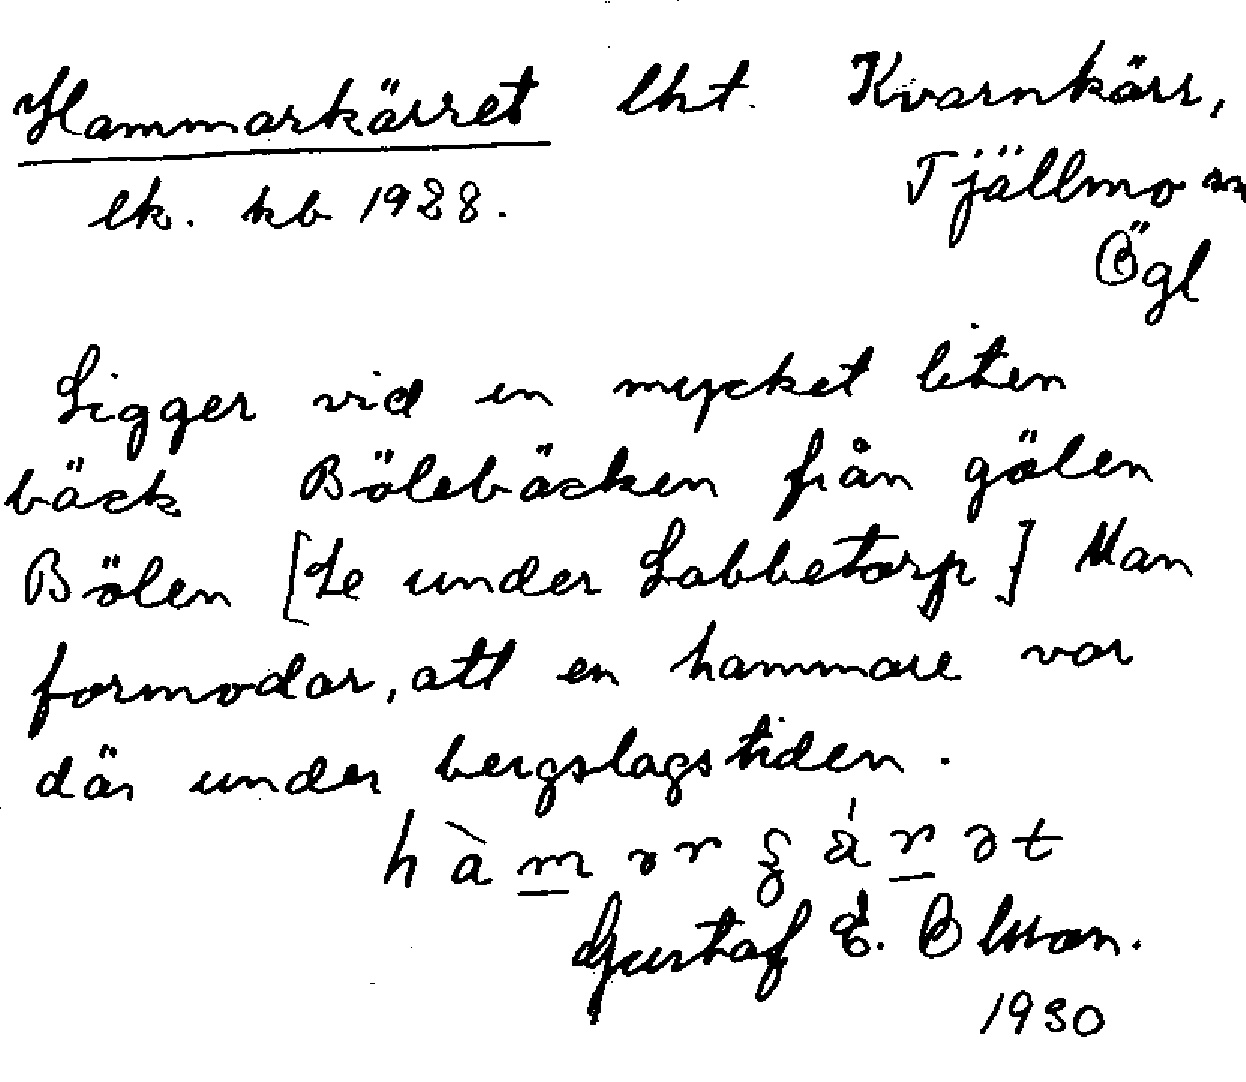 Hammarkärret lht. Kvarnkärr,
lk. kb 1928. Tjällmo sn
Ögl
Ligger vid en mycket liten
bäck Bölebäcken från gölen
Bölen [Se under Labbetorp] Man
förmodar, att en hammare var
där under bergslagstiden.
Gustaf E. Olsson.
1930